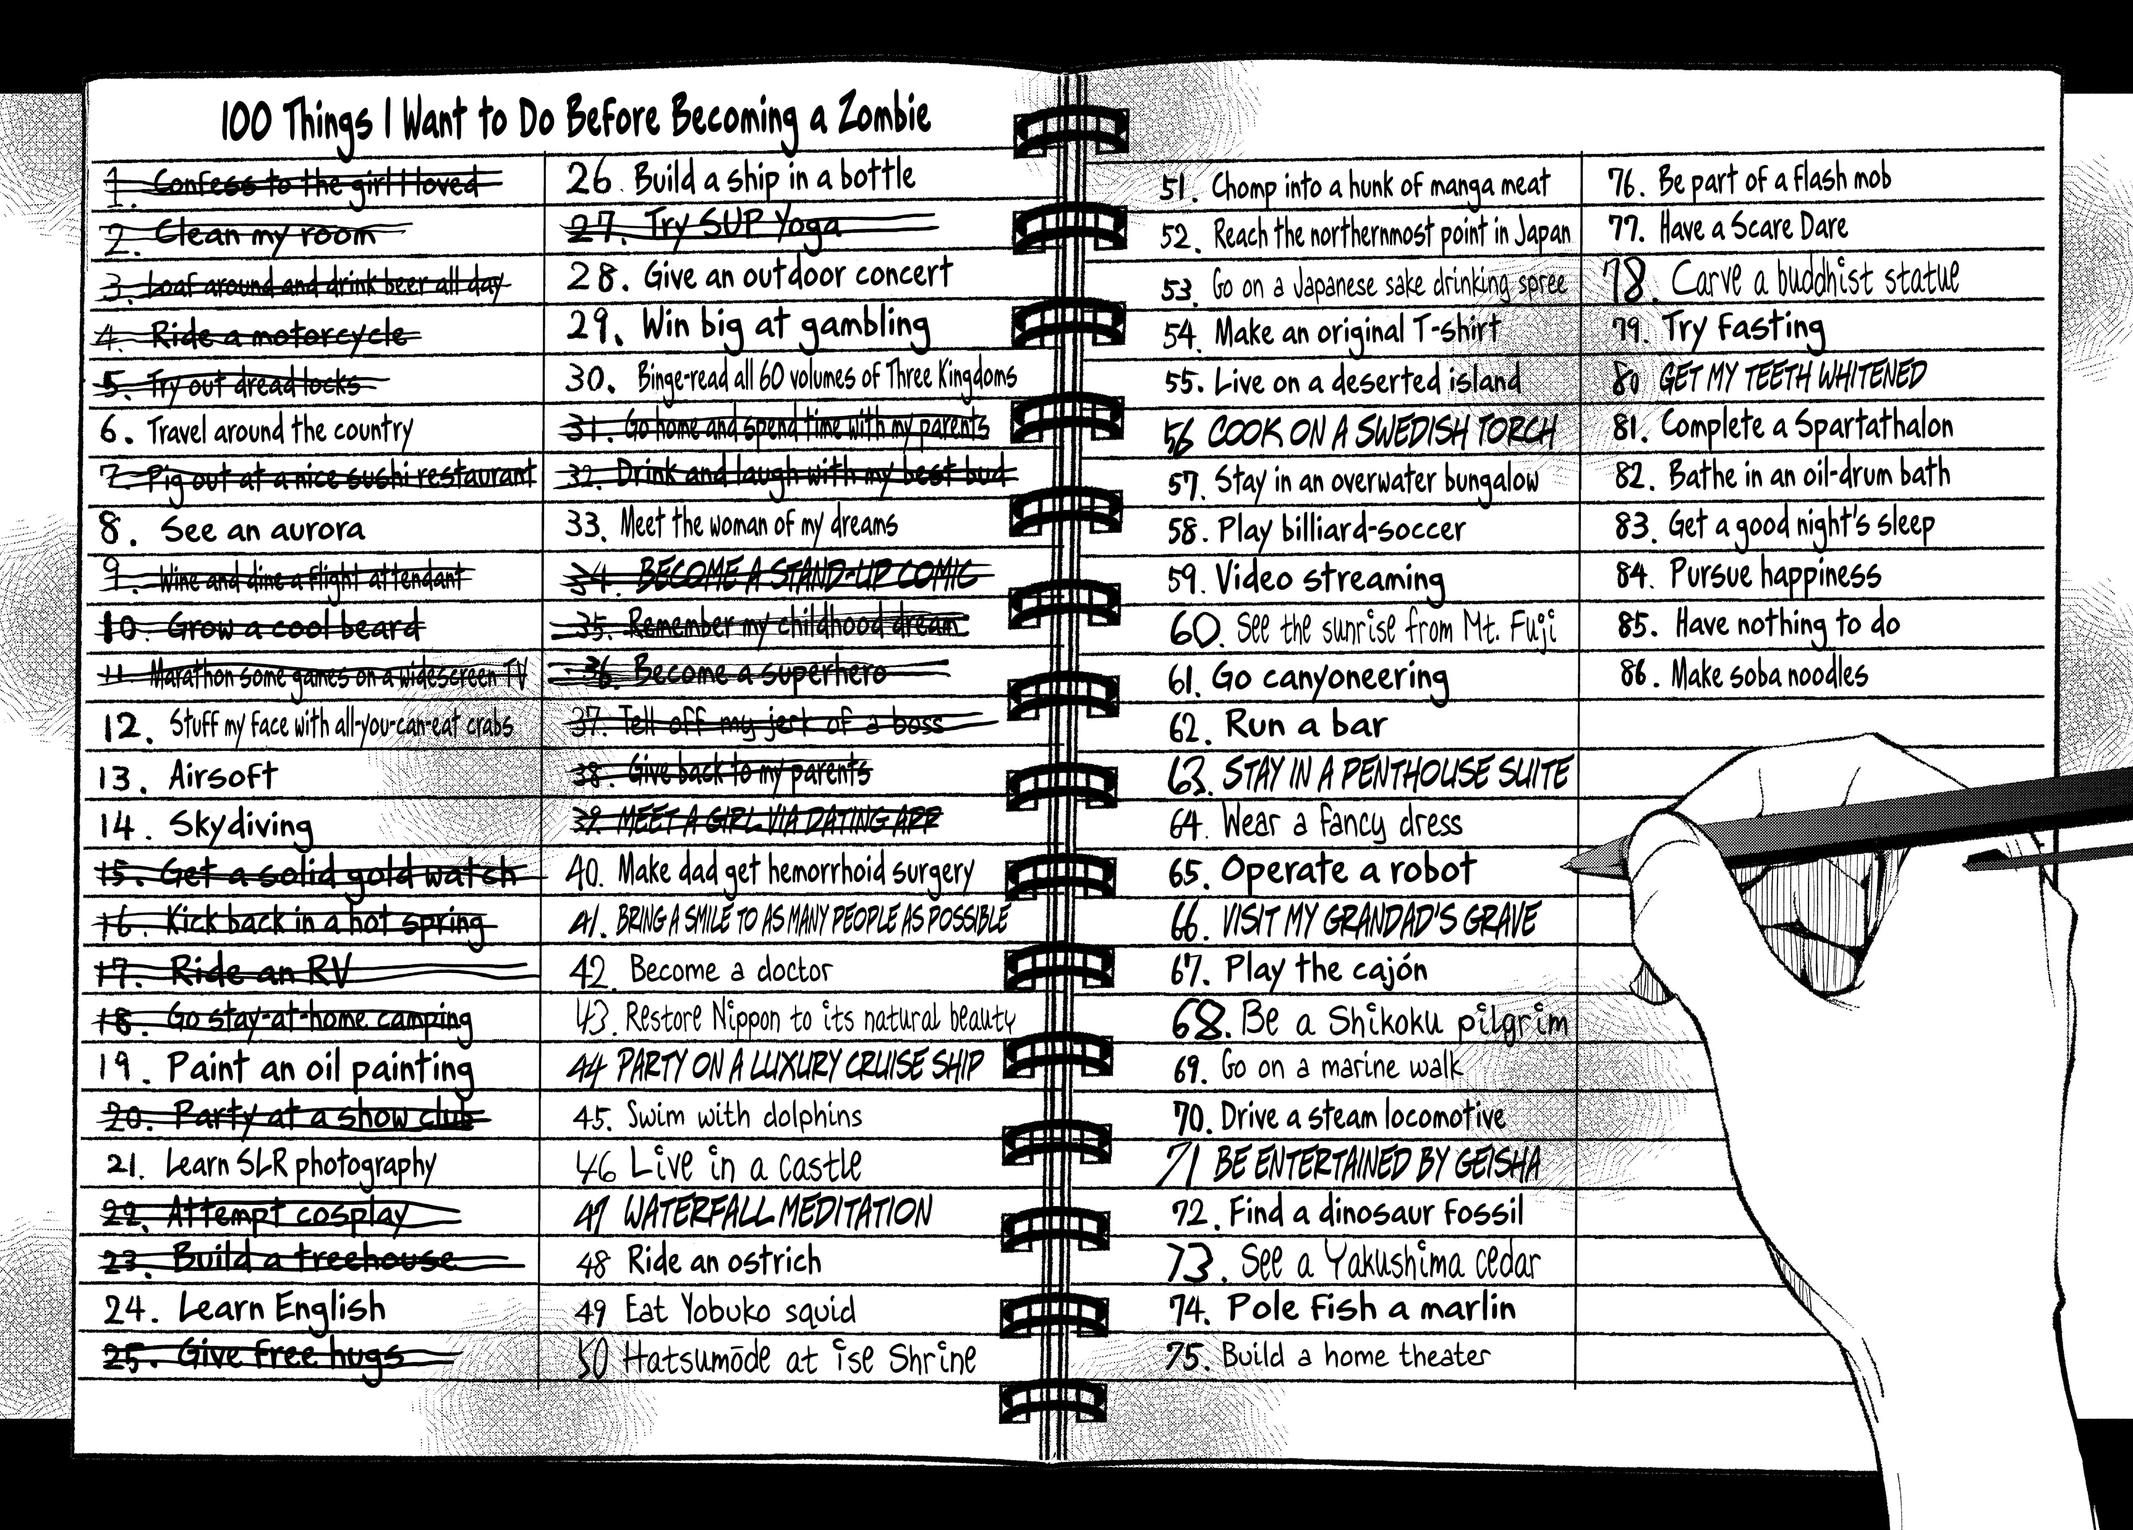 100 Things I Want to Do Before Becoming a Zombie
1. Confess to the girl I loved
2. Clean my room
3. Loaf around and drink beer all day
4. Ride a motorcycle
5. Try out dreadlocks
6. Travel around the country
7. Pig out at a nice sushi restaurant
8. See an aurora
9. Wine and dine a flight attendant
10. Grow a cool beard
11. Marathon some games on a widescreen TV
12. Stuff my face with all-you-can-eat crabs
13. Airsoft
14. Skydiving
15. Get a solid gold watch
16. Kick back in a hot spring
17. Ride an RV
18. Go stay-at-home camping
19. Paint an oil painting
20. Party at a show club
21. Learn SLR photography
22. Attempt cosplay
23. Build a treehouse
24. Learn English
25. Give free hugs
26. Build a ship in a bottle
27. Try SUP Yoga
28. Give an outdoor concert
29. Win big at gambling
30. Binge-read all 60 volumes of Three Kingdoms
31. Go home and spend time with my parents
32. Drink and laugh with my best bud
33. Meet the woman of my dreams
34. BECOME A STAND-UP COMIC
35. Remember my childhood dream
36. Become a superhero
37. Tell off my jerk of a boss
38. Give back to my parents
39. MEET A GIRL VIA DATING APP
40. Make dad get hemorrhoid surgery
41. BRING A SMILE TO AS MANY PEOPLE AS POSSIBLE
42. Become a doctor
43. Restore Nippon to its natural beauty
44 PARTY ON A LUXURY CRUISE SHIP
45. Swim with dolphins
46 Live in a castle
47 WATERFALL MEDITATION
48 Ride an ostrich
49 Eat Yobuko squid
50 Hatsumōde at ise Shrine
51. Chomp into a hunk of manga meat
52. Reach the northernmost point in Japan
53. Go on a Japanese sake drinking spree
54. Make an original T-shirt
55. Live on a deserted island
56 COOK ON A SWEDISH TORCH
57. Stay in an overwater bungalow
58. Play billiard-soccer
59. Video streaming
60. See the sunrise from Mt. Fuji
61. Go canyoneering
62. Run a bar
63. STAY IN A PENTHOUSE SUITE
64. Wear a fancy dress
65. Operate a robot
66. VISIT MY GRANDAD'S GRAVE
67. Play the cajón
68. Be a Shikoku pilgrim
69. Go on a marine walk
70. Drive a steam locomotive
71 BE ENTERTAINED BY GEISHA
72. Find a dinosaur fossil
73. See a Yakushima cedar
74. Pole fish a marlin
75. Build a home theater
76. Be part of a flash mob
77. Have a Scare Dare
78. Carve a buddhist statue
79. Try fasting
80 GET MY TEETH WHITENED
81. Complete a Spartathalon
82. Bathe in an oil-drum bath
83. Get a good night's sleep
84. Pursue happiness
85. Have nothing to do
86. Make soba noodles